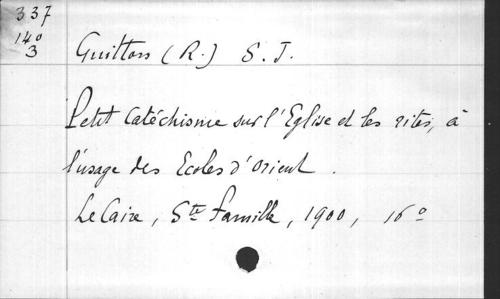 337
140
3
Guitton (R.) S. J.
Petit Catéchisme sur l'Eglise et les rites, à
l'usage des Ecoles d'Orient.
Le Caire, Ste famille, 1900, 16°